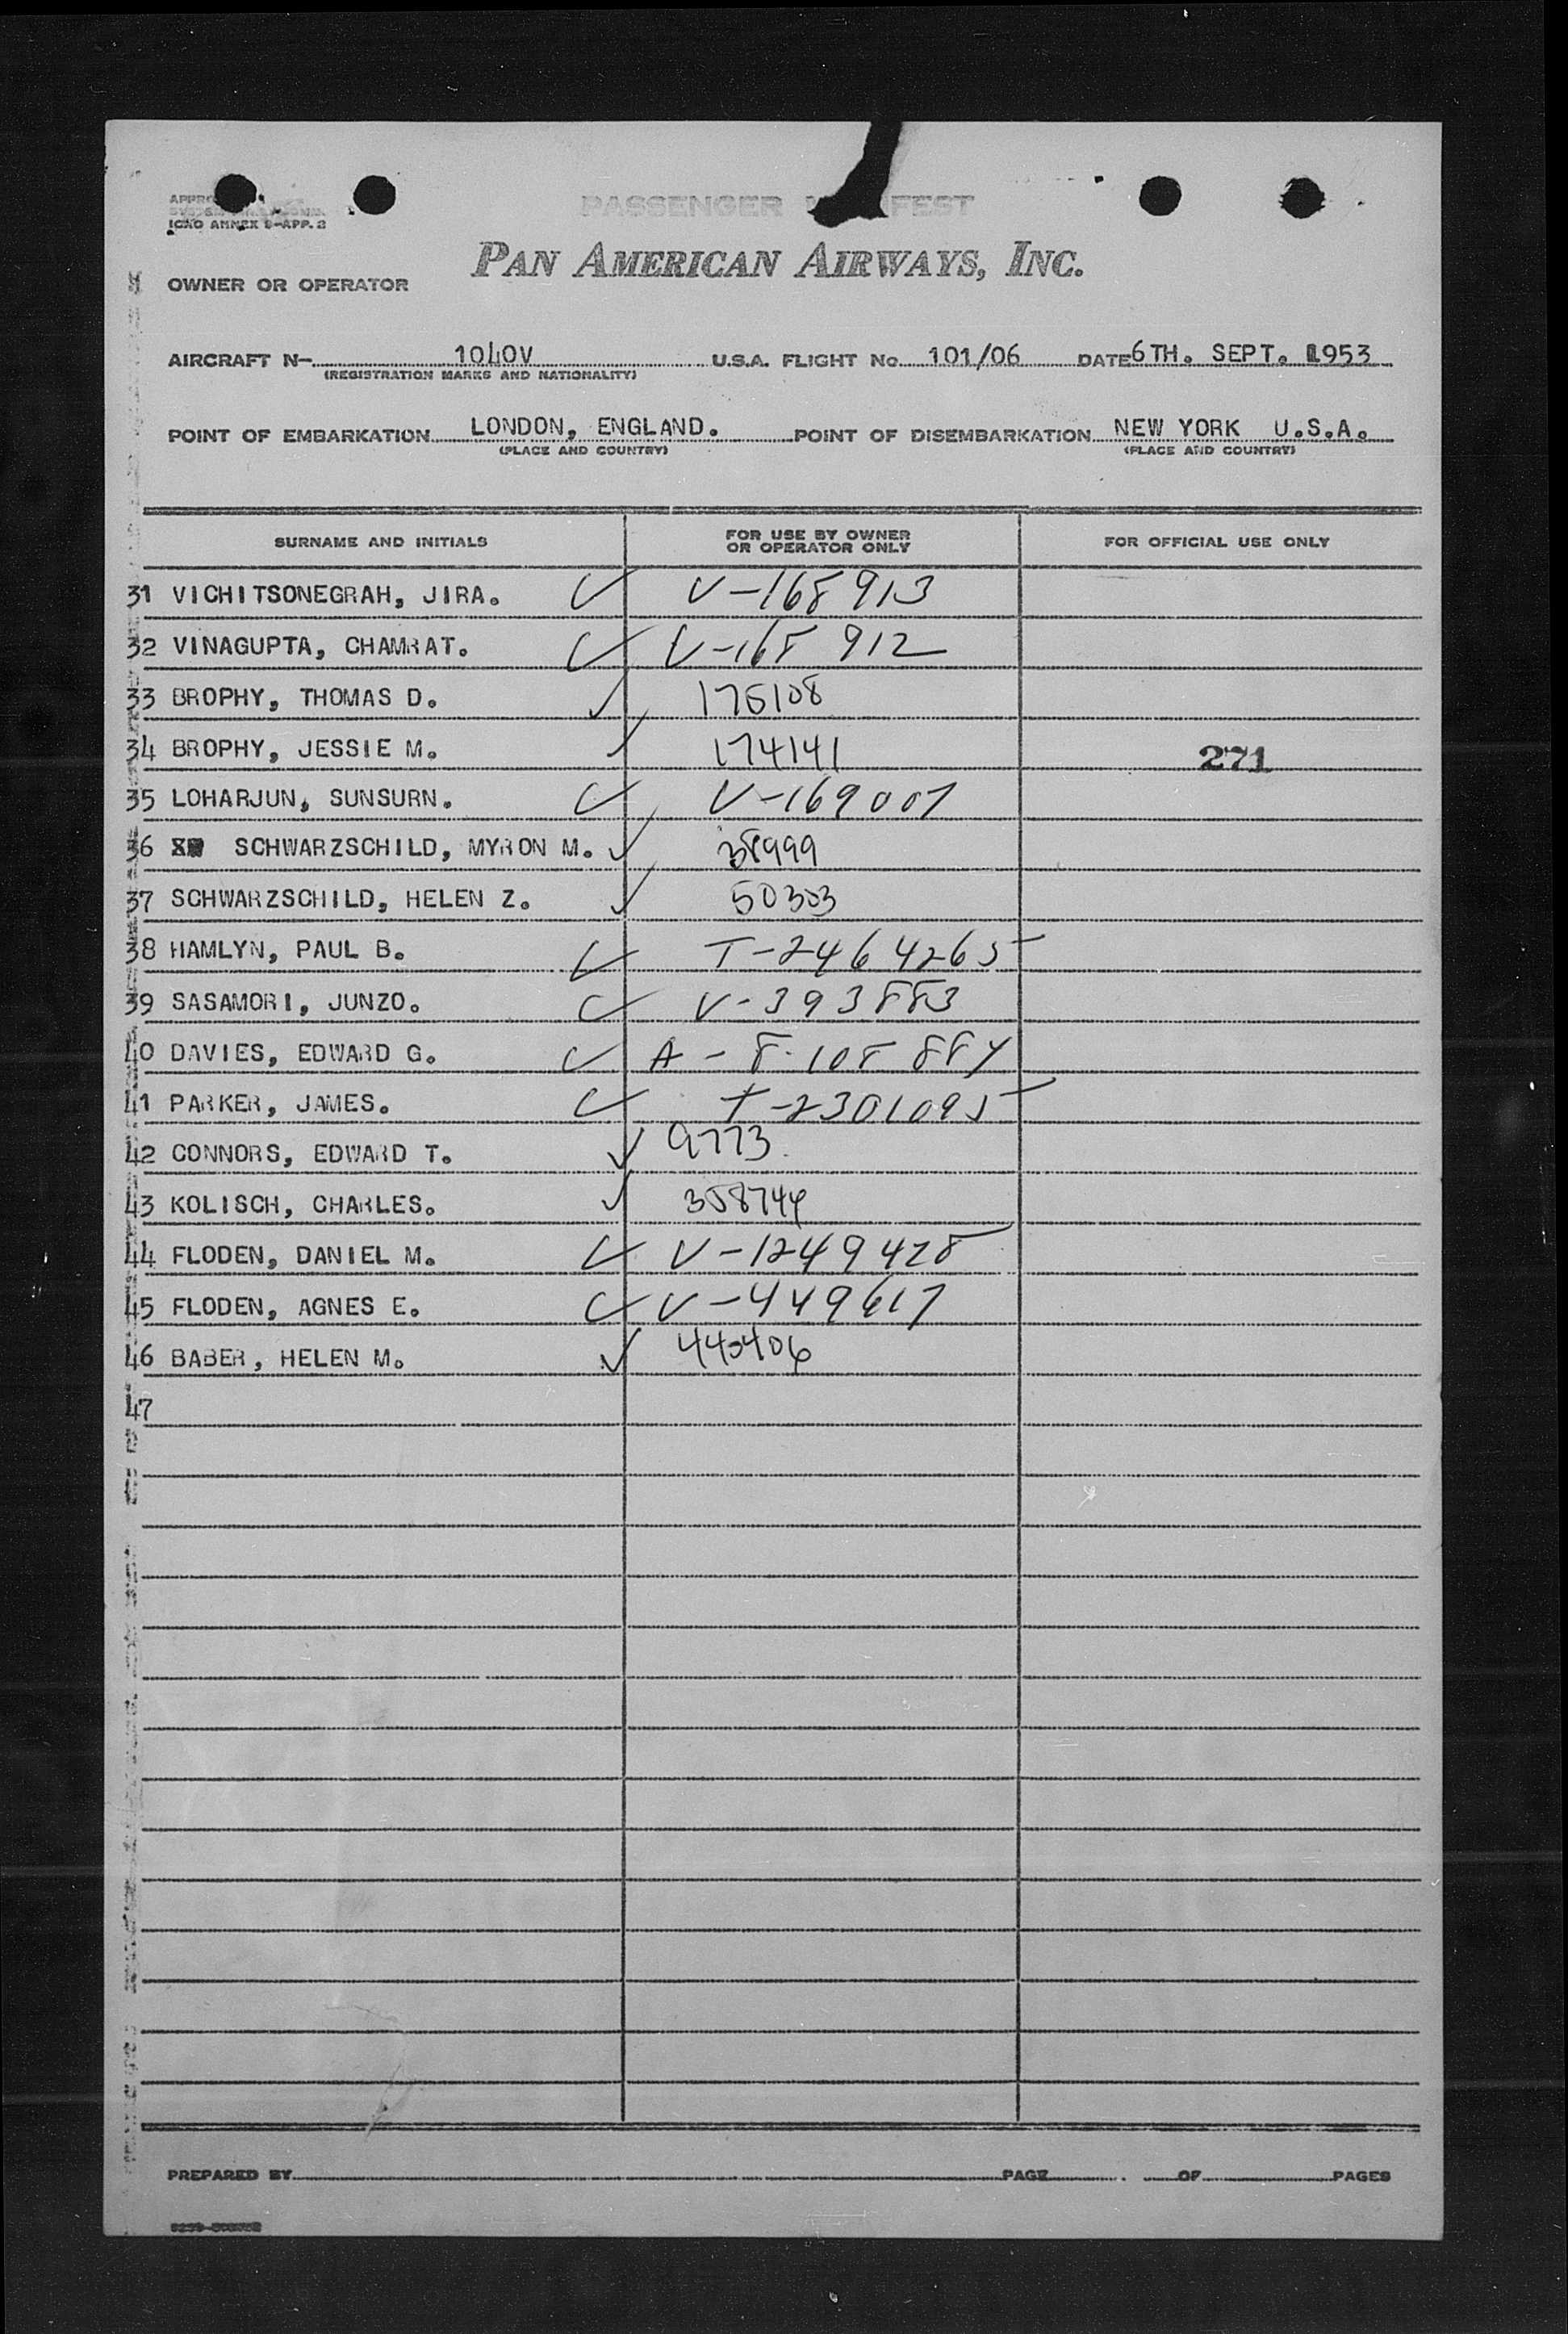 ICAO ANNEX 9-APP. 2
PASSENGER
PAN AMERICAN AIRWAYS, INC.
OWNER OR OPERATOR
AIRCRAFT N- 1040V U.S.A. FLIGHT No. 101/06 DATE 6TH. SEPT. 1953
(REGISTRATION MARKS AND NATIONALITY)
POINT OF EMBARKATION LONDON, ENGLAND. POINT OF DISEMBARKATION NEW YORK U.S.A.
(PLACE AND COUNTRY) (PLACE AND COUNTRY)
SURNAME AND INITIALS FOR USE BY OWNER OR OPERATOR ONLY FOR OFFICIAL USE ONLY
31 VICHITSONEGRAH, JIRA. ✓ V-168913
32 VINAGUPTA, CHAMRAT. ✓ V-168 912
33 BROPHY, THOMAS D. ✓ 175108
34 BROPHY, JESSIE M. ✓ 174141 271
35 LOHARJUN, SUNSURN. ✓ V-169007
36 SCHWARZSCHILD, MYRON M. ✓ 38999
37 SCHWARZSCHILD, HELEN Z. ✓ 50303
38 HAMLYN, PAUL B. ✓ T-2464265
39 SASAMORI, JUNZO. ✓ V-393883
40 DAVIES, EDWARD G. ✓ A-8-108
41 PARKER, JAMES. ✓ T-2301095
42 CONNORS, EDWARD T. ✓ 9773
43 KOLISCH, CHARLES. ✓
44 FLODEN, DANIEL M. ✓ V-1249428
45 FLODEN, AGNES E. ✓ V-449617
46 BABER, HELEN M. ✓
47
PREPARED BY PAGE OF PAGES